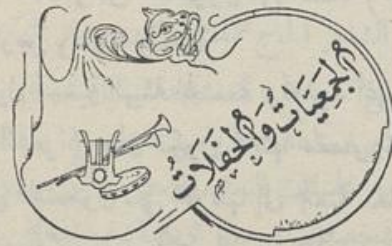 الجَمعيّاتُ وَالحَفَلاتُ